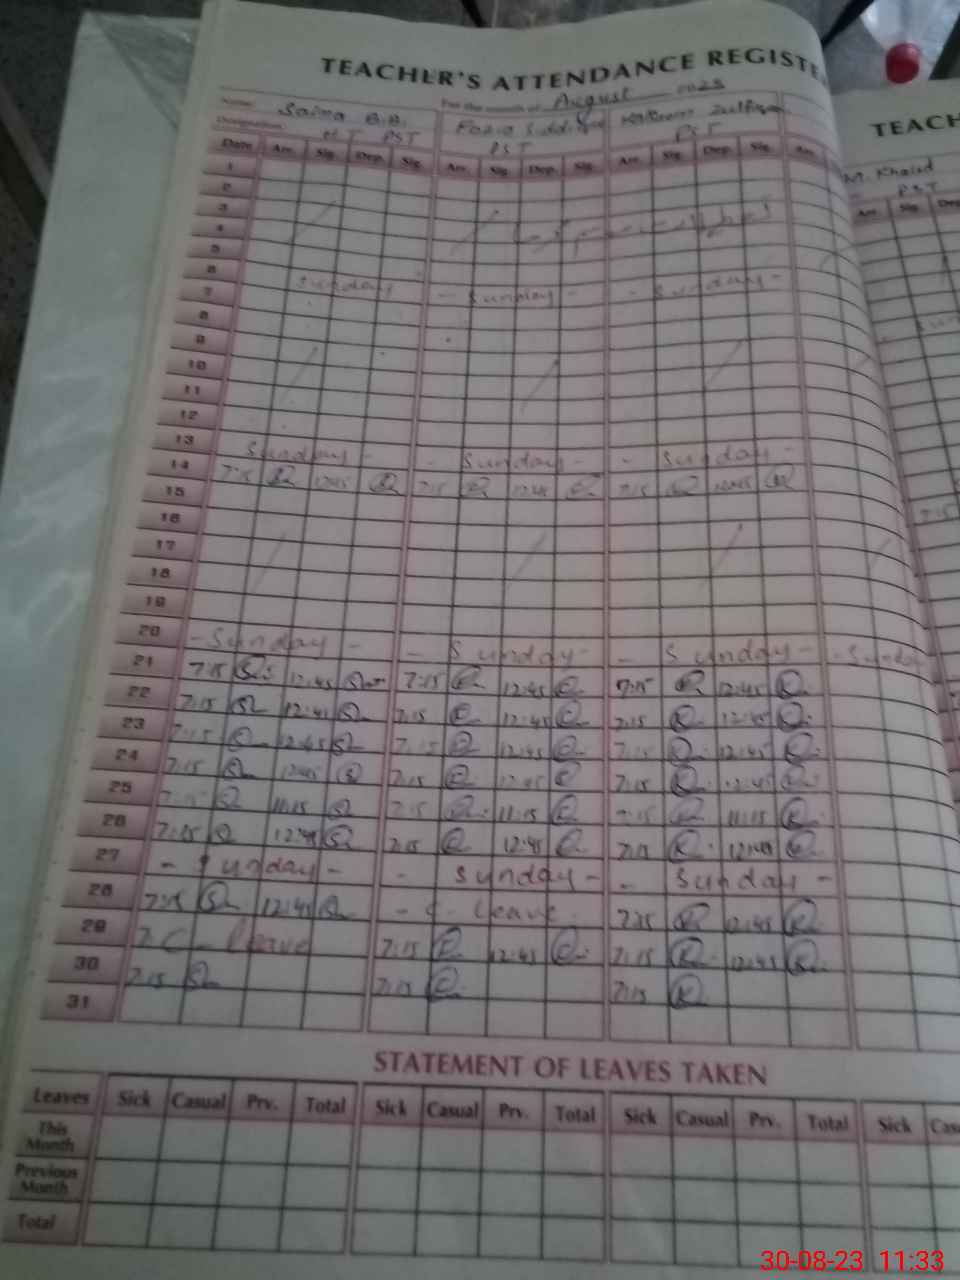 TEACHER'S ATTENDANCE REGISTE
Name Saima B.B. For the month of August
Designation HT PST Fozia Siddique PST Kalsoom Zulfiqar PST
TEACH
M. Khalid
PST
Date Arr. Sig. Dep. Sig. Arr. Sig. Dep. Sig. Arr. Sig. Dep. Sig. Arr.
Arr. Sig. Dep
1
2
3
4
5
6 Sunday - Sunday - - Sunday -
7
8
9
10
11
12
13 Sunday - - Sunday - - Sunday -
14 7:15 12:45 7:15 12:45 7:15 12:45
15 7:15
16
17
18
19
20 - Sunday - - Sunday - - Sunday - - Sunday
21 7:15 12:45 7:15 12:45 7:15 12:45
22 7:15 12:45 7:15 12:45 7:15 12:45
23 7:15 12:45 7:15 12:45 7:15 12:45
24 7:15 12:45 7:15 12:45 7:15 12:45
25 7:15 11:15 7:15 11:15 7:15 11:15
26 7:15 12:45 7:15 12:45 7:15 12:45
27 - Sunday - - Sunday - - Sunday -
28 7:15 12:45 - C - leave 7:15 12:45
29 C - leave 7:15 12:45 7:15 12:45
30 7:15 7:15 7:15
31
STATEMENT OF LEAVES TAKEN
Leaves Sick Casual Prv. Total Sick Casual Prv. Total Sick Casual Prv. Total Sick Cas
This Month
Previous Month
Total
30-08-23 11:33